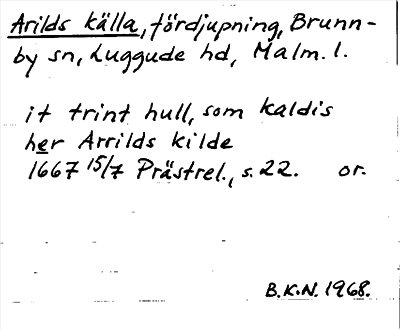 Arilds källa, fördjupning, Brunn-
by sn, Luggude hd, Malm. l.
it trint hull, som kaldis
her Arrilds kilde
1667 15/7 Prästrel., s. 22. or.
B.K.N. 1968.